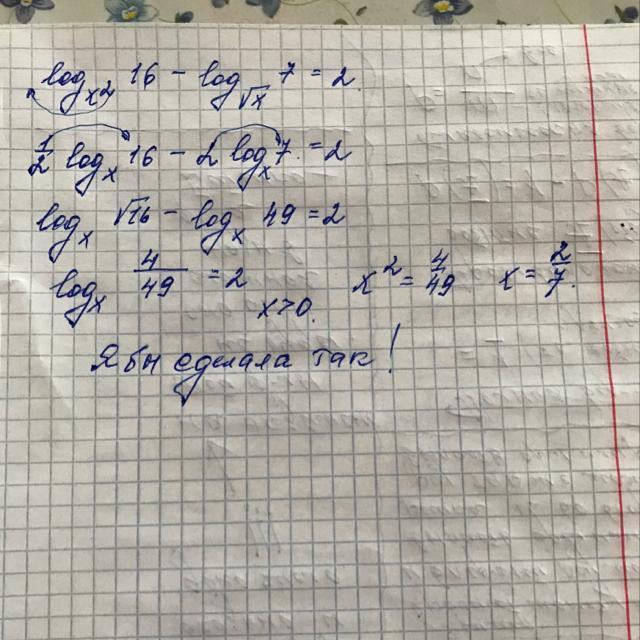 log_{x^2} 16 - log_{√x} 7 = 2
1/2 log_x 16 - 2 log_x 7 = 2
log_x √16 - log_x 49 = 2
log_x 4/49 = 2 x^2 = 4/49 x = 2/7.
x>0.
Я бы сделала так!